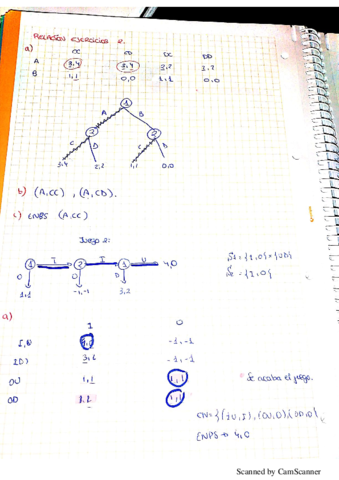 RELACIÓN EJERCICIOS 2.
a) CC CD DC DD
A 3,4 3,4 3,2 3,2
B 1,1 0,0 1,1 0,0
1
A B
2 2
C D C D
3,4 1,1 0,0
b) (A,CC), (A,CD).
c) ENPS (A,CC)
Juego 2:
1 I 2 I 1 U 4,0
O O D
1,1 -1,-1 3,2
a)
I O
-1,-1
-1,-1
OU 1,1 1,1
OD 1,1 1,1
Se acaba el juego.
ENPS → 4,0
Scanned by CamScanner